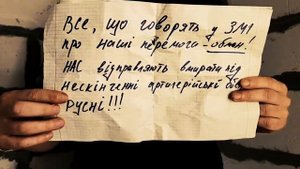 Все, що говорять у ЗМІ
про наші перемоги - обман!
НАС відправляють вмирати під
нескінченні артилерійські бої
русні!!!